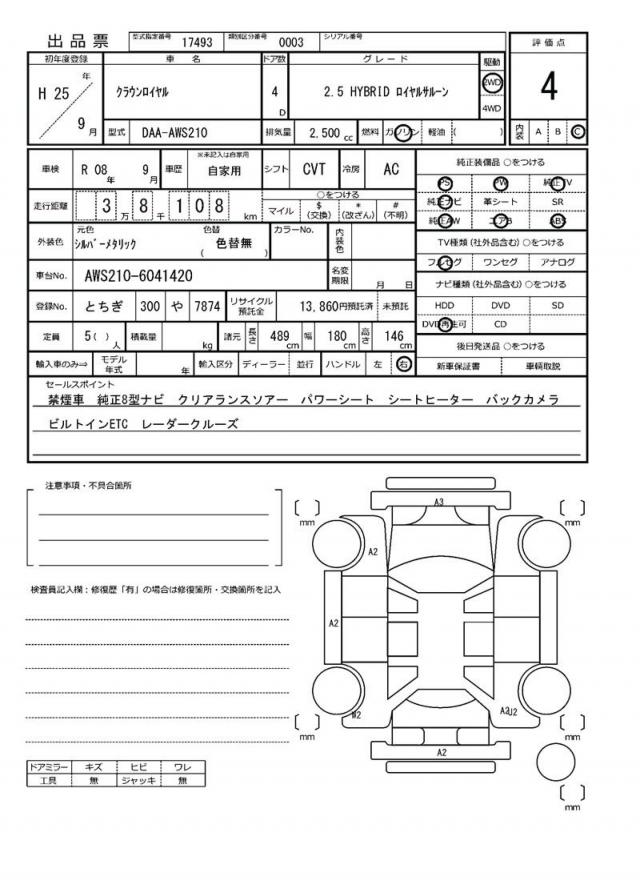 出品票 型式指定番号 17493 類別区分番号 0003 シリアル番号
初年度登録 車 名 ドア数 グレード 駆動 評価点
H 25 年 9 月 クラウンロイヤル 4 D 2.5 HYBRID ロイヤルサルーン 2WD 4WD 4
型式 DAA-AWS210 排気量 2,500 cc 燃料 ガソリン 軽油 ( ) 内装 A B C
車検 R 08 年 9 月 車歴 ※未記入は自家用 自家用 シフト CVT 冷房 AC 純正装備品 ○をつける
PS PW 純正TV
走行距離 3 万 8 千 1 0 8 km ○をつける 純正ナビ 革シート SR
マイル $ (交換) * (改ざん) # (不明) 純正AW エアB ABS
外装色 元色 シルバーメタリック 色替 ( 色替無 ) カラーNo. 内装色 TV種類 (社外品含む) ○をつける
フルセグ ワンセグ アナログ
車台No. AWS210-6041420 名変期限 月 日 ナビ種類 (社外品含む) ○をつける
登録No. とちぎ 300 や 7874 リサイクル預託金 13,860円預託済 未預託 HDD DVD SD
DVD再生可 CD
定員 5( ) 人 積載量 kg 諸元 長さ 489 cm 幅 180 cm 高さ 146 cm 後日発送品 ○をつける
輸入車のみ⇒ モデル年式 年 輸入区分 ディーラー 並行 ハンドル 左 右 新車保証書 車輌取説
セールスポイント
禁煙車 純正8型ナビ クリアランスソアー パワーシート シートヒーター バックカメラ
ビルトインETC レーダークルーズ
注意事項・不具合箇所
検査員記入欄：修復歴「有」の場合は修復箇所・交換箇所を記入
A3
mm mm
A2
A2
W2 A2 U2
mm mm
A2
mm
ドアミラー キズ ヒビ ワレ
工具 無 ジャッキ 無